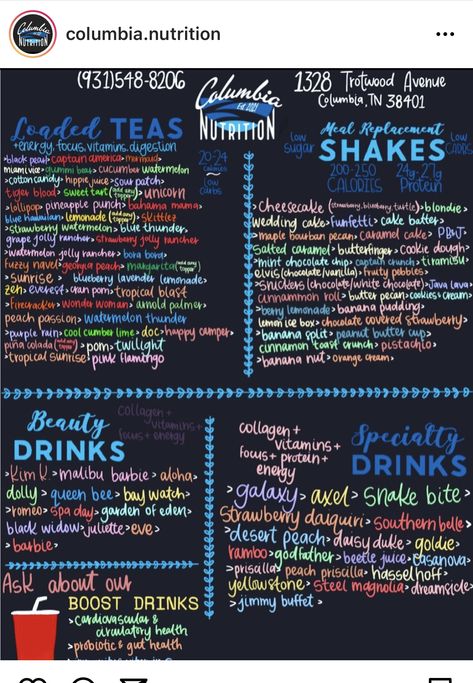 columbia.nutrition
(931)548-8206
Columbia
Est 2021
NUTRITION
1328 Trotwood Avenue
Columbia, TN 38401
Loaded TEAS
+energy, focus, vitamins, digestion
20-24
calories
low
carbs
>black pearl> captain america> mermaid>
miami vice> gummi bear> cucumber watermelon
>cottoncandy> hippie juice> sour patch>
tiger blood> sweet tart (add any topper) > unicorn
>lollipop> pineapple punch> bahama mama>
blue hawaiian> lemonade (add any topper)> skittlez
>strawberry watermelon> blue thunder>
grape jolly rancher> strawberry jolly rancher
>watermelon jolly rancher> bora bora>
fuzzy navel> georgia peach> margarita
>sunrise> blueberry lavender lemonade>
zen> everest> cran pom> tropical blast
>firecracker> wonder woman> arnold palmer>
peach passion> watermelon thunder
>purple rain> cool cumber lime> doc> happy camper>
pina colada (add any topper) >pom> twilight
>tropical sunrise> pink flamingo
Low
Sugar
Meal Replacement
SHAKES
Low
CARBS
200-250
CALORIES
24g-27g
Protein
>cheesecake (strawberry, blueberry, turtle)> blondie>
wedding cake> funfetti> cake batter>
>maple bourbon pecan> caramel cake> PB&J>
salted caramel> butterfinger> cookie dough>
>mint chocolate chip> captain crunch> tiramisu
elvis (chocolate/vanilla)> fruity pebbles>
>snuckers (chocolate/white chocolate)> Java lava>
cinnammon roll> butter pecan> cookies & cream>
>berry lemonade> banana pudding>
lemon ice box> chocolate covered strawberry>
>banana split> peanut butter cup>
cinnamon toast crunch> pistachio>
>banana nut> orange cream>
Beauty
DRINKS
collagen+
vitamins+
focus+ energy
>Kim K.> malibu barbie> aloha>
dolly> queen bee> bay watch>
>romeo> spa day> garden of eden>
black widow> juliette> eve>
>barbie>
collagen+
vitamins+
focus+ protein+
energy
Specialty
DRINKS
>galaxy> axel> snake bite>
strawberry daiquiri> southern belle>
>desert peach> daisy duke> goldie>
rambo> godfather> beetle juice> casanova>
>priscilla> peach priscilla> hasselhoff>
yellowstone> steel magnolia> dreamsicle>
>jimmy buffet>
Ask about our
BOOST DRINKS
>cardiovascular &
circulatory health
>probiotic & gut health